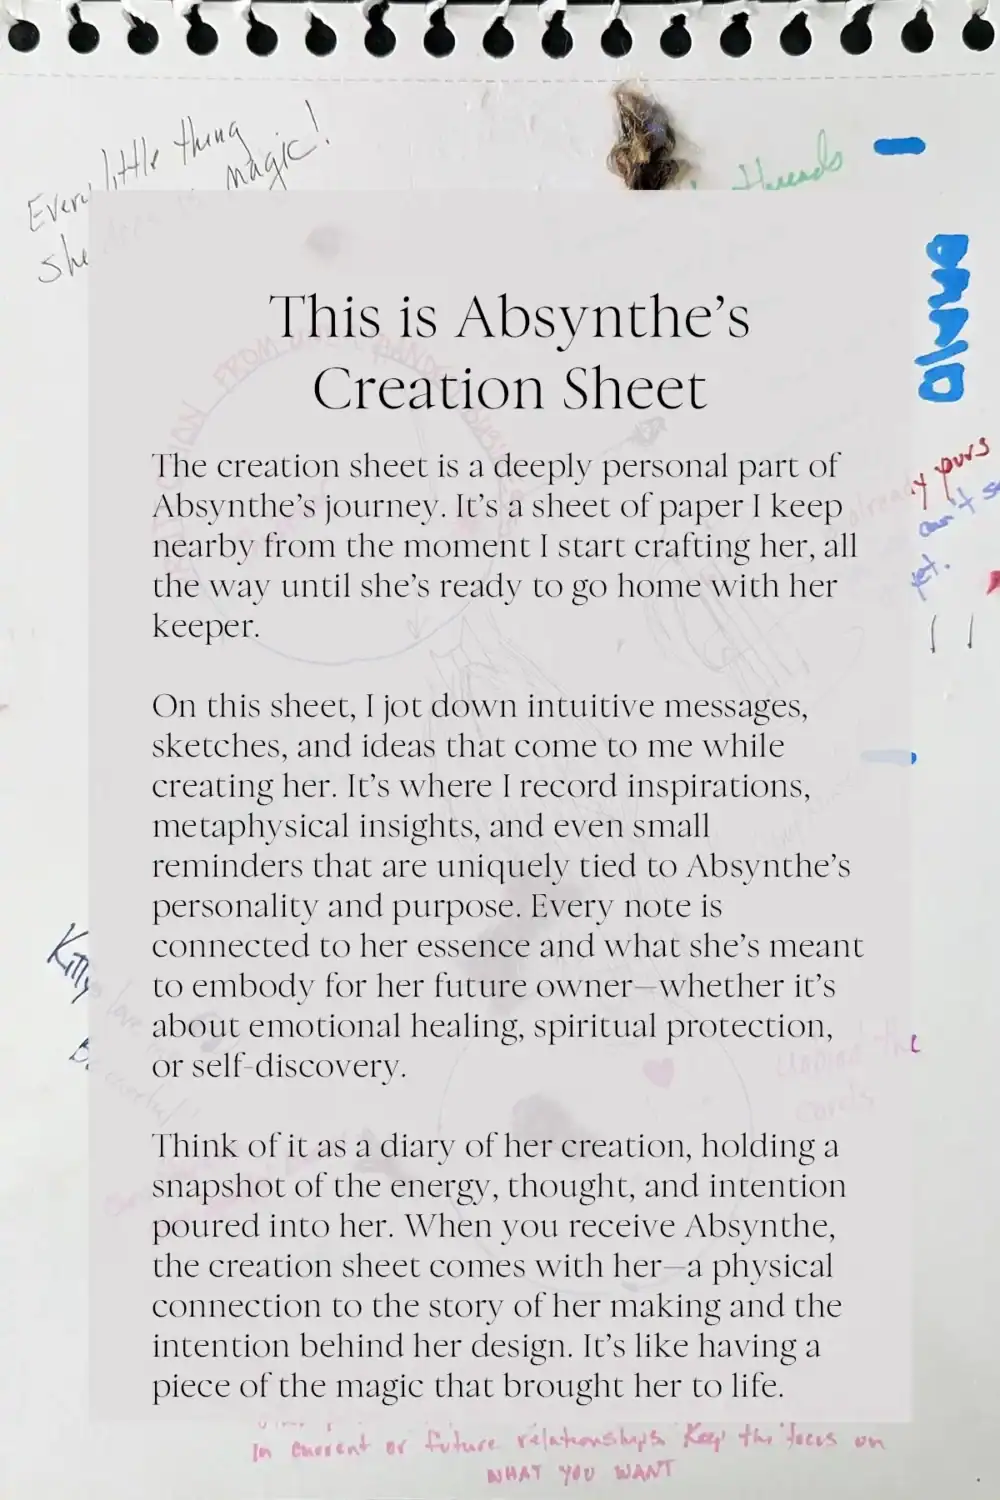 Every little thing
she does is magic!
threads
This is Absynthe's
Creation Sheet
The creation sheet is a deeply personal part of
Absynthe's journey. It's a sheet of paper I keep
nearby from the moment I start crafting her, all
the way until she's ready to go home with her
keeper.
On this sheet, I jot down intuitive messages,
sketches, and ideas that come to me while
creating her. It's where I record inspirations,
metaphysical insights, and even small
reminders that are uniquely tied to Absynthe's
personality and purpose. Every note is
connected to her essence and what she's meant
to embody for her future owner—whether it's
about emotional healing, spiritual protection,
or self-discovery.
Think of it as a diary of her creation, holding a
snapshot of the energy, thought, and intention
poured into her. When you receive Absynthe,
the creation sheet comes with her—a physical
connection to the story of her making and the
intention behind her design. It's like having a
piece of the magic that brought her to life.
FROM
already yours
yet.
Kitty love
Unbind the
cords
In current or future relationships. Keep the focus on
WHAT YOU WANT